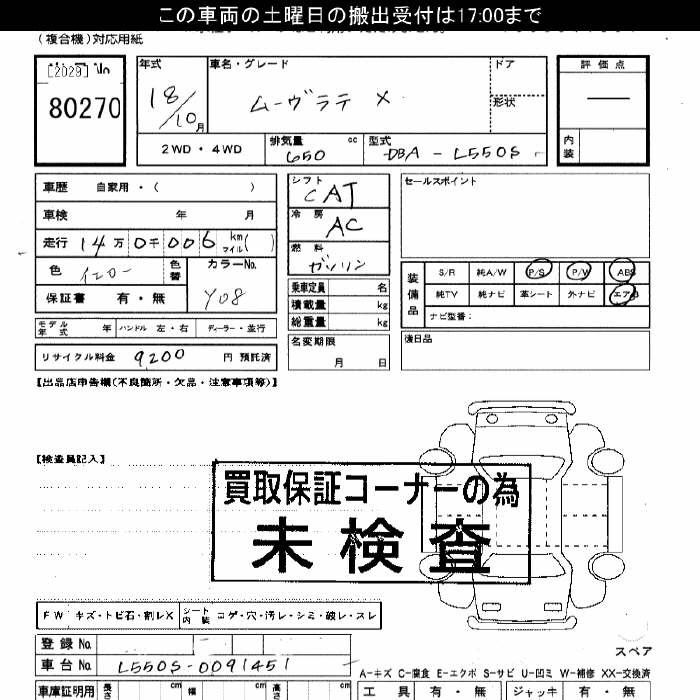 この車両の土曜日の搬出受付は17:00まで
(複合機)対応用紙
[2029] No
80270
年式
18/10月
車名・グレード
ムーヴラテ X
ドア
形状
評価点
内装
2WD・4WD
排気量 650 cc
型式 DBA-L550S
車歴 自家用・( )
車検 年 月
走行 14万0千006 km マイル( )
色 イエロー 色替
カラーNo. Y08
保証書 有・無
シフト CAT
冷房 AC
燃料 ガソリン
乗車定員 名
積載量 kg
総重量 kg
名変期限
月 日
セールスポイント
装備品
S/R 純A/W P/S P/W ABS
純TV 純ナビ 革シート 外ナビ エアB
ナビ型番:
後日品
モデル年式 年 ハンドル 左・右 ディーラー・並行
リサイクル料金 9200 円 預託済
【出品店申告欄(不良箇所・欠品・注意事項等)】
【検査員記入】
買取保証コーナーの為
未検査
FW キズ・トビ石・割レX シート内装 コゲ・穴・汚レ・シミ・破レ・スレ
登録No.
車台No. L550S-0091451
スペア
A-キズ C-腐食 E-エクボ S-サビ U-凹ミ W-補修 XX-交換済
車庫証明用 長さ cm 幅 cm 高さ cm
工具 有・無 ジャッキ 有・無